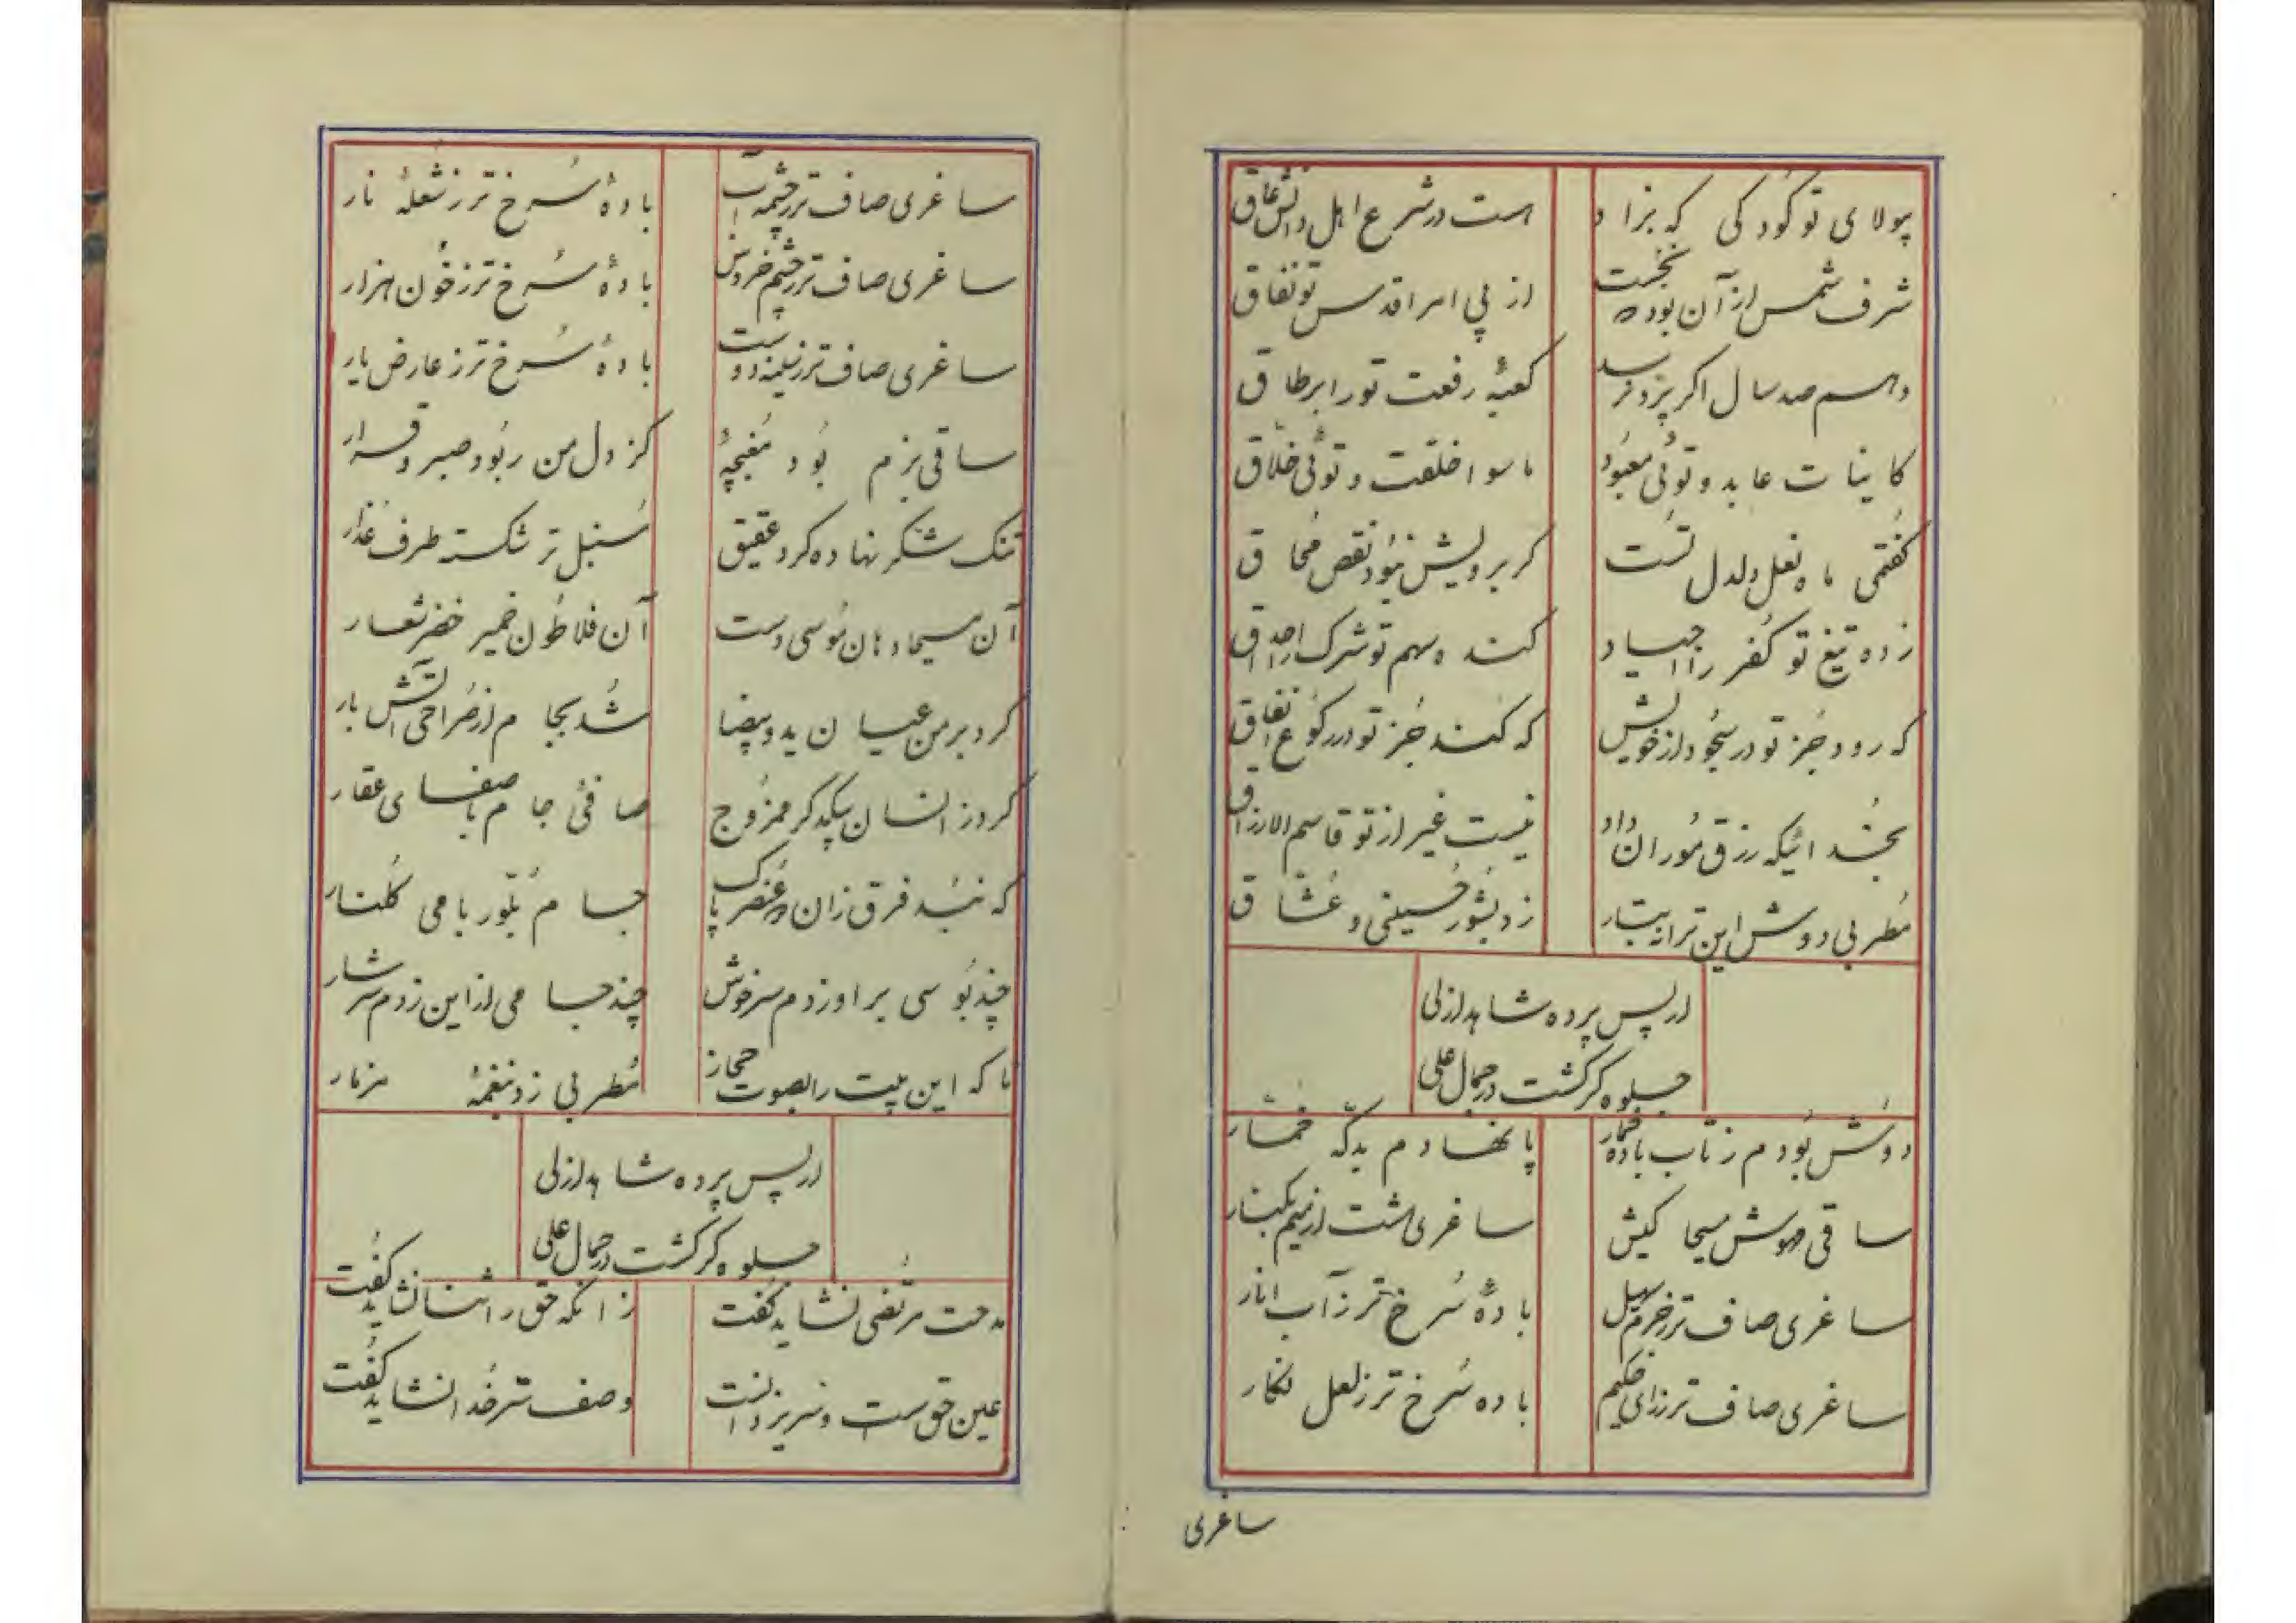 بیولای تو کودکی که بزاد است در شرع اهل دانش عاق
شرف شمس از آن بود که نخست از پی امر اقدست تو نفاق
واهم صد سال اگر پرد نرسد کعبهٔ رفعت تو را بر طاق
کاینات عابد و توئی معبود ماسوا خلقت و توئی خلّاق
گفتمی ماه نعل دلدل تست گر برویش نبود نقص مُحاق
زده تیغ تو کفر را بنیاد کنده سهم تو شرک را احداق
که رود جُز تو در سجُود از خویش که کند جُز تو در رکوع انفاق
بخُدائیکه رزق موران داد نیست غیر از تو قاسم الارزاق
مُطربی دوش این ترانه بتار زد بشور حُسینی و عُشّاق
از پس پرده شاهد ازلی
جلوه گر گشت در جمال علی
دوش بودم ز تاب باده خمار پا نهادم بدکّه خمّار
ساقی مهوش مسیحا کیش ساغری هشت از نیم بکنار
ساغری صاف تر ز جرم سهیل بادهٔ سُرخ تر ز آب انار
ساغری صاف تر ز رای حکیم باده سُرخ تر ز لعل نگار
ساغری
ساغری صاف تر ز چشمه آب بادهٔ سُرخ تر ز شعلهٔ نار
ساغری صاف تر ز چشم خروس بادهٔ سُرخ تر ز خون هزار
ساغری صاف تر ز سینه دوست بادهٔ سُرخ تر ز عارض یار
ساقی بزم بُود مُغبچهٔ کز دل من ربُود صبر و قرار
تنک شکر نهاده گرد عقیق سُنبل تر شکسته طرف عذار
آن مسیحا دهان مُوسی دست آن فلاطُون ضمیر خضر شعار
کرد بر من عیان ید و بیضا شُد بجام از صُراحی آتش بار
کرد ز انسان بیکدگر ممزُوج صافئ جام با صفای عقار
که نبُد فرق زان دو عُنصر پاک جام بلّور با می گلنار
چند بُوسی بر او زدم سرخوش چند جامی از این زدم سرشار
تا که این بیت را بصوت حجاز مُطربی زد بنغمهٔ مزمار
از پس پرده شاهد ازلی
جلوه گر گشت در جمال علی
مدحت مرتضی نشاید گفت زانکه حق را ثنا نشاید گفت
عین حق است و سر یزدانست وصف سر خُدا نشاید گفت